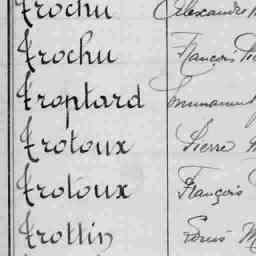 Trochu Alexandre
Trochu François
Troptard Emmanuel
Trotoux Pierre
Trotoux François
Trottin Louis M